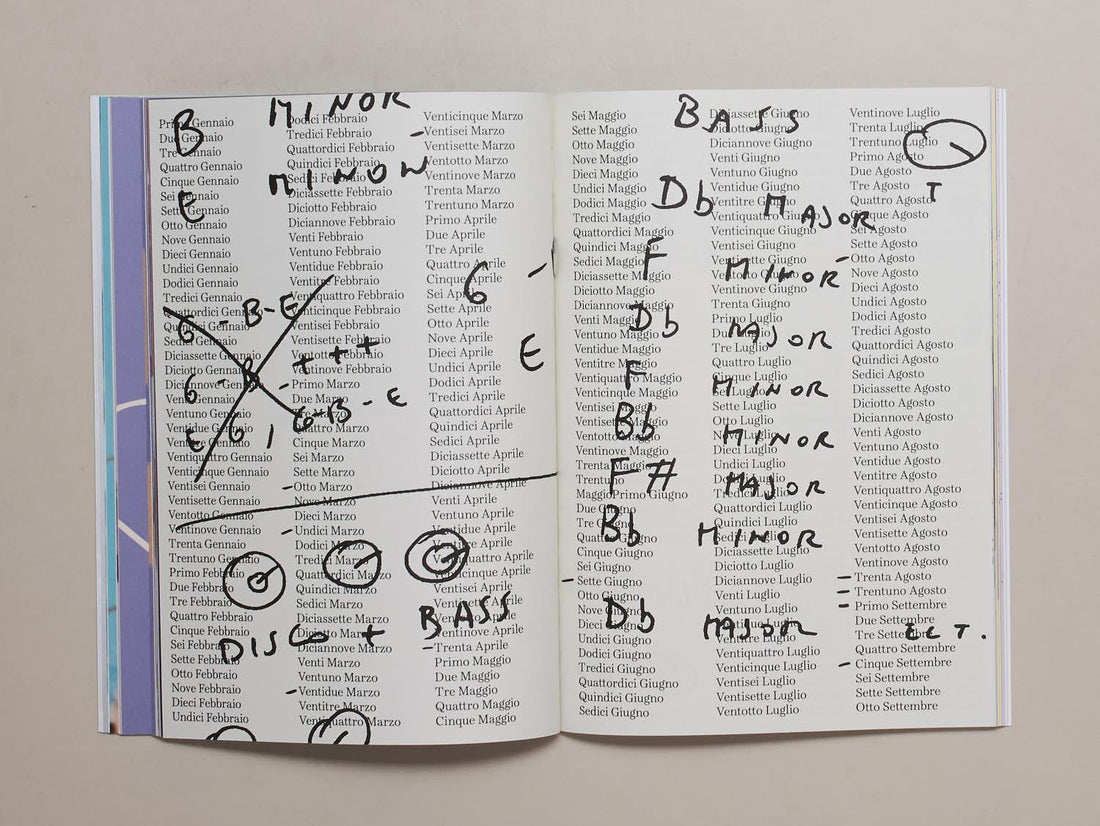 Primo Gennaio
Due Gennaio
Tre Gennaio
Quattro Gennaio
Cinque Gennaio
Sei Gennaio
Sette Gennaio
Otto Gennaio
Nove Gennaio
Dieci Gennaio
Undici Gennaio
Dodici Gennaio
Tredici Gennaio
Quattordici Gennaio
Quindici Gennaio
Sedici Gennaio
Diciassette Gennaio
Diciotto Gennaio
Diciannove Gennaio
Venti Gennaio
Ventuno Gennaio
Ventidue Gennaio
Ventitre Gennaio
Ventiquattro Gennaio
Venticinque Gennaio
Ventisei Gennaio
Ventisette Gennaio
Ventotto Gennaio
Ventinove Gennaio
Trenta Gennaio
Trentuno Gennaio
Primo Febbraio
Due Febbraio
Tre Febbraio
Quattro Febbraio
Cinque Febbraio
Sei Febbraio
Sette Febbraio
Otto Febbraio
Nove Febbraio
Dieci Febbraio
Undici Febbraio
Dodici Febbraio
Tredici Febbraio
Quattordici Febbraio
Quindici Febbraio
Sedici Febbraio
Diciassette Febbraio
Diciotto Febbraio
Diciannove Febbraio
Venti Febbraio
Ventuno Febbraio
Ventidue Febbraio
Ventitre Febbraio
Ventiquattro Febbraio
Venticinque Febbraio
Ventisei Febbraio
Ventisette Febbraio
Ventotto Febbraio
Ventinove Febbraio
Primo Marzo
Due Marzo
Tre Marzo
Quattro Marzo
Cinque Marzo
Sei Marzo
Sette Marzo
Otto Marzo
Nove Marzo
Dieci Marzo
Undici Marzo
Dodici Marzo
Tredici Marzo
Quattordici Marzo
Quindici Marzo
Sedici Marzo
Diciassette Marzo
Diciotto Marzo
Diciannove Marzo
Venti Marzo
Ventuno Marzo
Ventidue Marzo
Ventitre Marzo
Ventiquattro Marzo
Venticinque Marzo
Ventisei Marzo
Ventisette Marzo
Ventotto Marzo
Ventinove Marzo
Trenta Marzo
Trentuno Marzo
Primo Aprile
Due Aprile
Tre Aprile
Quattro Aprile
Cinque Aprile
Sei Aprile
Sette Aprile
Otto Aprile
Nove Aprile
Dieci Aprile
Undici Aprile
Dodici Aprile
Tredici Aprile
Quattordici Aprile
Quindici Aprile
Sedici Aprile
Diciassette Aprile
Diciotto Aprile
Diciannove Aprile
Venti Aprile
Ventuno Aprile
Ventidue Aprile
Ventitre Aprile
Ventiquattro Aprile
Venticinque Aprile
Ventisei Aprile
Ventisette Aprile
Ventotto Aprile
Ventinove Aprile
Trenta Aprile
Primo Maggio
Due Maggio
Tre Maggio
Quattro Maggio
Cinque Maggio
B MINOR
E MINOR
G - B - E
+ + +
G - B - E
G -
E
G - B
E G
DISCO + BASS
Sei Maggio
Sette Maggio
Otto Maggio
Nove Maggio
Dieci Maggio
Undici Maggio
Dodici Maggio
Tredici Maggio
Quattordici Maggio
Quindici Maggio
Sedici Maggio
Diciassette Maggio
Diciotto Maggio
Diciannove Maggio
Venti Maggio
Ventuno Maggio
Ventidue Maggio
Ventitre Maggio
Ventiquattro Maggio
Venticinque Maggio
Ventisei Maggio
Ventisette Maggio
Ventotto Maggio
Ventinove Maggio
Trenta Maggio
Trentuno
MaggioPrimo Giugno
Due Giugno
Tre Giugno
Quattro Giugno
Cinque Giugno
Sei Giugno
Sette Giugno
Otto Giugno
Nove Giugno
Dieci Giugno
Undici Giugno
Dodici Giugno
Tredici Giugno
Quattordici Giugno
Quindici Giugno
Sedici Giugno
Diciassette Giugno
Diciotto Giugno
Diciannove Giugno
Venti Giugno
Ventuno Giugno
Ventidue Giugno
Ventitre Giugno
Ventiquattro Giugno
Venticinque Giugno
Ventisei Giugno
Ventisette Giugno
Ventotto Giugno
Ventinove Giugno
Trenta Giugno
Primo Luglio
Due Luglio
Tre Luglio
Quattro Luglio
Cinque Luglio
Sei Luglio
Sette Luglio
Otto Luglio
Nove Luglio
Dieci Luglio
Undici Luglio
Dodici Luglio
Tredici Luglio
Quattordici Luglio
Quindici Luglio
Sedici Luglio
Diciassette Luglio
Diciotto Luglio
Diciannove Luglio
Venti Luglio
Ventuno Luglio
Ventidue Luglio
Ventitre Luglio
Ventiquattro Luglio
Venticinque Luglio
Ventisei Luglio
Ventisette Luglio
Ventotto Luglio
Ventinove Luglio
Trenta Luglio
Trentuno Luglio
Primo Agosto
Due Agosto
Tre Agosto
Quattro Agosto
Cinque Agosto
Sei Agosto
Sette Agosto
Otto Agosto
Nove Agosto
Dieci Agosto
Undici Agosto
Dodici Agosto
Tredici Agosto
Quattordici Agosto
Quindici Agosto
Sedici Agosto
Diciassette Agosto
Diciotto Agosto
Diciannove Agosto
Venti Agosto
Ventuno Agosto
Ventidue Agosto
Ventitre Agosto
Ventiquattro Agosto
Venticinque Agosto
Ventisei Agosto
Ventisette Agosto
Ventotto Agosto
Ventinove Agosto
Trenta Agosto
Trentuno Agosto
Primo Settembre
Due Settembre
Tre Settembre
Quattro Settembre
Cinque Settembre
Sei Settembre
Sette Settembre
Otto Settembre
BASS
T
Db MAJOR
F MINOR
Db MAJOR
F MINOR
Bb MINOR
F# MAJOR
Bb MINOR
Db MAJOR ECT.